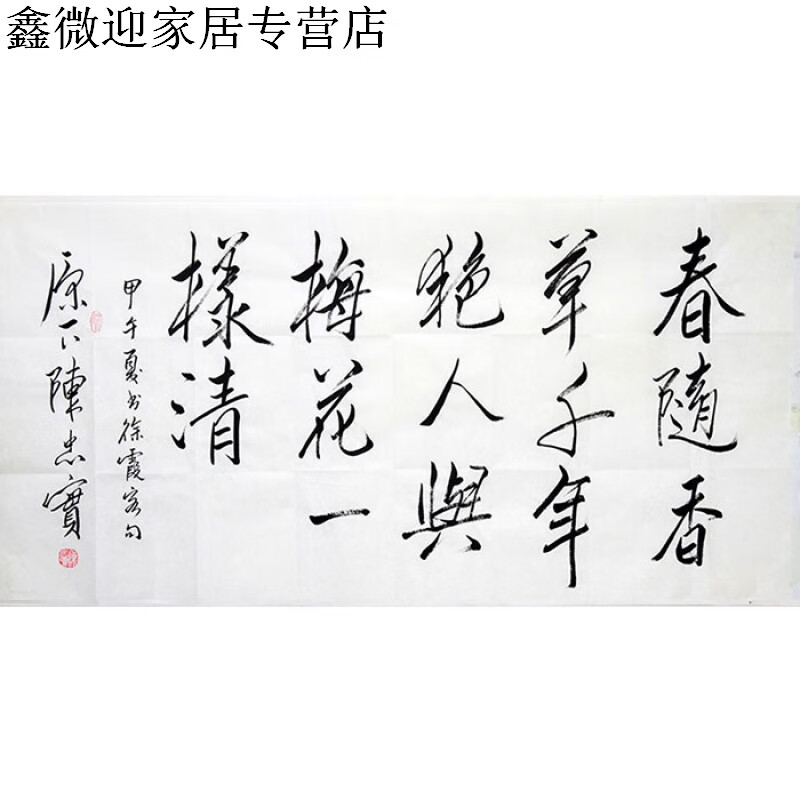 鑫微迎家居专营店
春隨香
草千年
艳人與
梅花一
樣清
甲午夏书徐霞客句
原下陳忠實